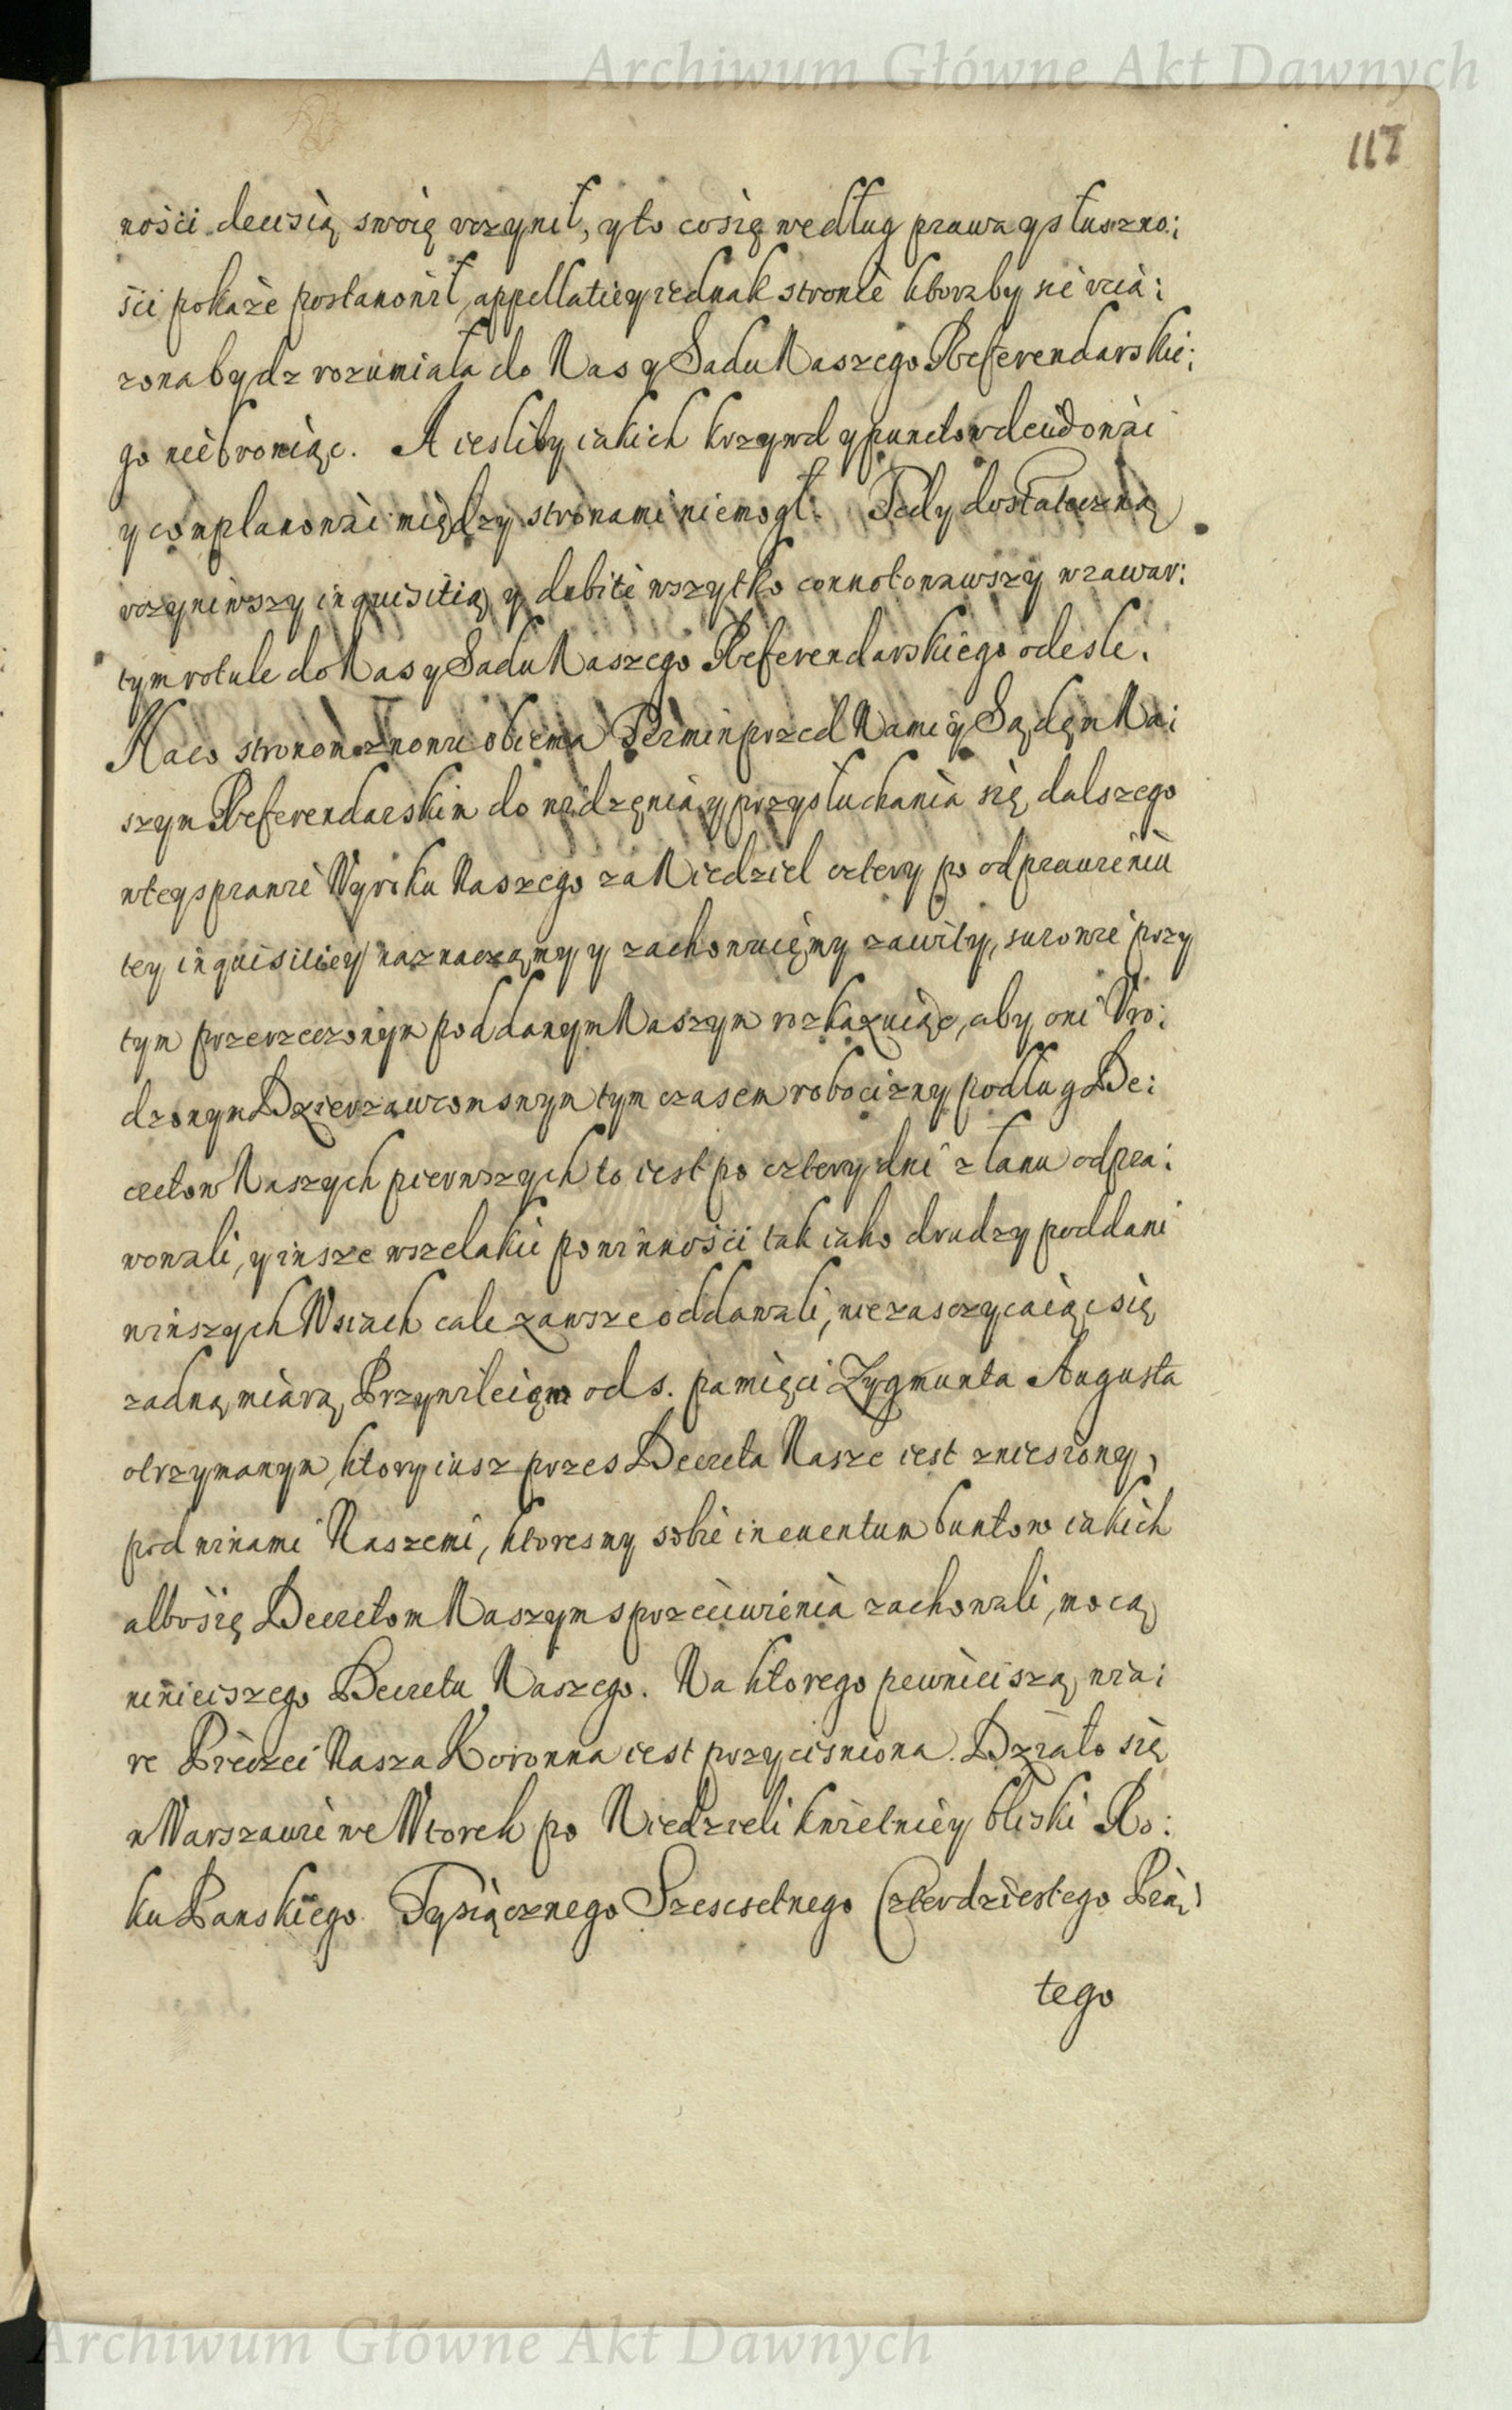 Archiwum Główne Akt Dawnych
117
ności decisią swoię uczynił, y to co się według prawa y słuszno:
ści pokaże postanowił, appellatiey iednak stronie ktoraby się vcią:
zona bydz rozumiała do Nas y Sadu Naszego Referendarskie:
go nie broniąc. A iesliby iakich krzywd y punctow decidowai
y complanowai między stronami niemogł: Tedy dostateczną
uczyniwszy inquisitią y debite wszytko connotowawszy w zawar:
tym rotule do Nas y Sadu Naszego Referendarskiego odesle.
Na co stronom znowu obiema Termin przed Nami y Sądęm Na:
szym Referendarskim do widzęnia y przysłuchania się dalszego
w tey sprawie Wyroku Naszego za Niedziel cztery po odprawieniu
tey inquisitiey naznaczamy y zachowuięmy zawity, surowie przy
tym przerzeczonym poddanym Naszym rozkazuiąc, aby oni Vro:
dzonym Dzierzawcom swym tym czasem robocizny podług De:
cretow Naszych pierwszych to iest po cztery dni z łanu odpra:
wowali, y insze wszelakie powinności tak iako drudzy poddani
w inszych Wsiach cale zawsze oddawali, nie zasczycaiąc się
zadną miarą Przywileięm od s. pamięci Zygmunta Augusta
otrzymanym, ktory iusz przes Decreta Nasze iest zniesiony,
pod winami Naszemi, ktoresmy sobie in euentum buntow iakich
albo się Decretom Naszym sprzeciwienia zachowali, mocą
ninieiszego Decretu Naszego. Na ktorego pewnieiszą wia:
re Pieczęi Nasza Koronna iest przycisniona. Działo się
w Warszawie we Wtorek po Niedzieli kwietniey bliski Ro:
ku Panskiego Tysiącznego Szescsetnego Czterdziestego Pią:
tego
Archiwum Główne Akt Dawnych